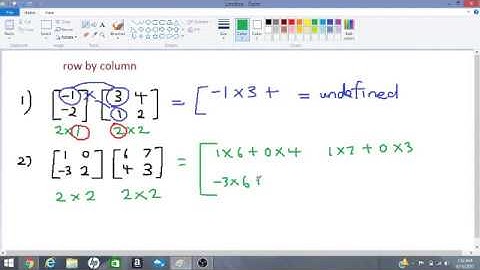 row by column
1) [-1 -2] × [3 4 1 2] = [ -1 × 3 + = undefined
2×1 2×2
2) [1 0 -3 2] [6 7 4 3] = [ 1×6 + 0×4 1×7 + 0×3
-3×6 +
2×2 2×2